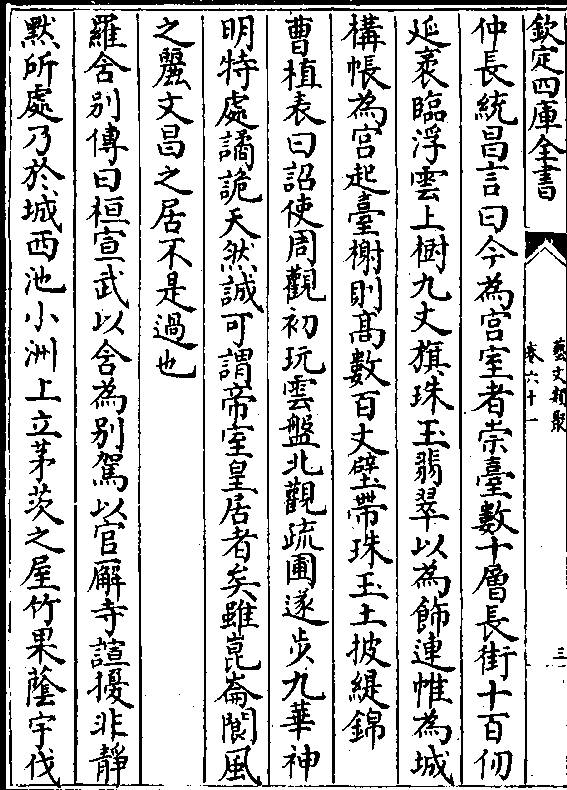 欽定四庫全書
藝文類聚
卷六十一
三
仲長統昌言曰今為宫室者崇臺數十層長街十百仞
延袤臨浮雲上樹九丈旗珠玉翡翠以為飾連帷為城
構帳為宫起臺榭則髙數百丈壁帶珠玉土披緹錦
曹植表曰詔使周觀初玩雲盤北觀疏圃遂步九華神
明特處譎詭天然誠可謂帝室皇居者矣雖崑崙閬風
之麗文昌之居不是過也
羅含别傳曰桓宣武以含為别駕以官廨寺諠擾非靜
默所處乃於城西池小洲上立茅茨之屋竹果蔭宇伐